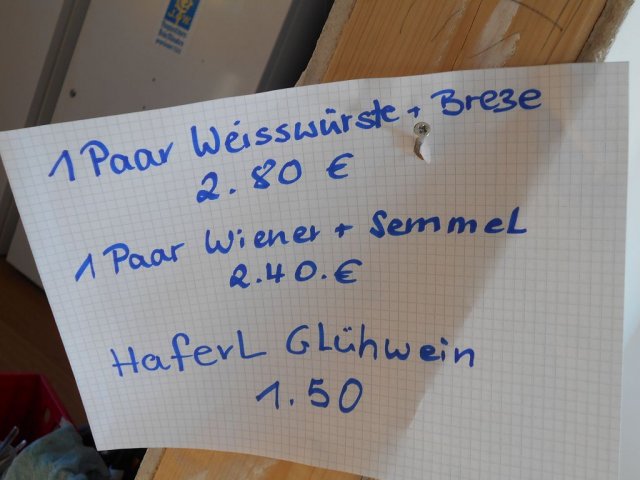 1 Paar Weisswürste + Breze
2.80 €
1 Paar Wiener + Semmel
2.40.€
Haferl Glühwein
1.50